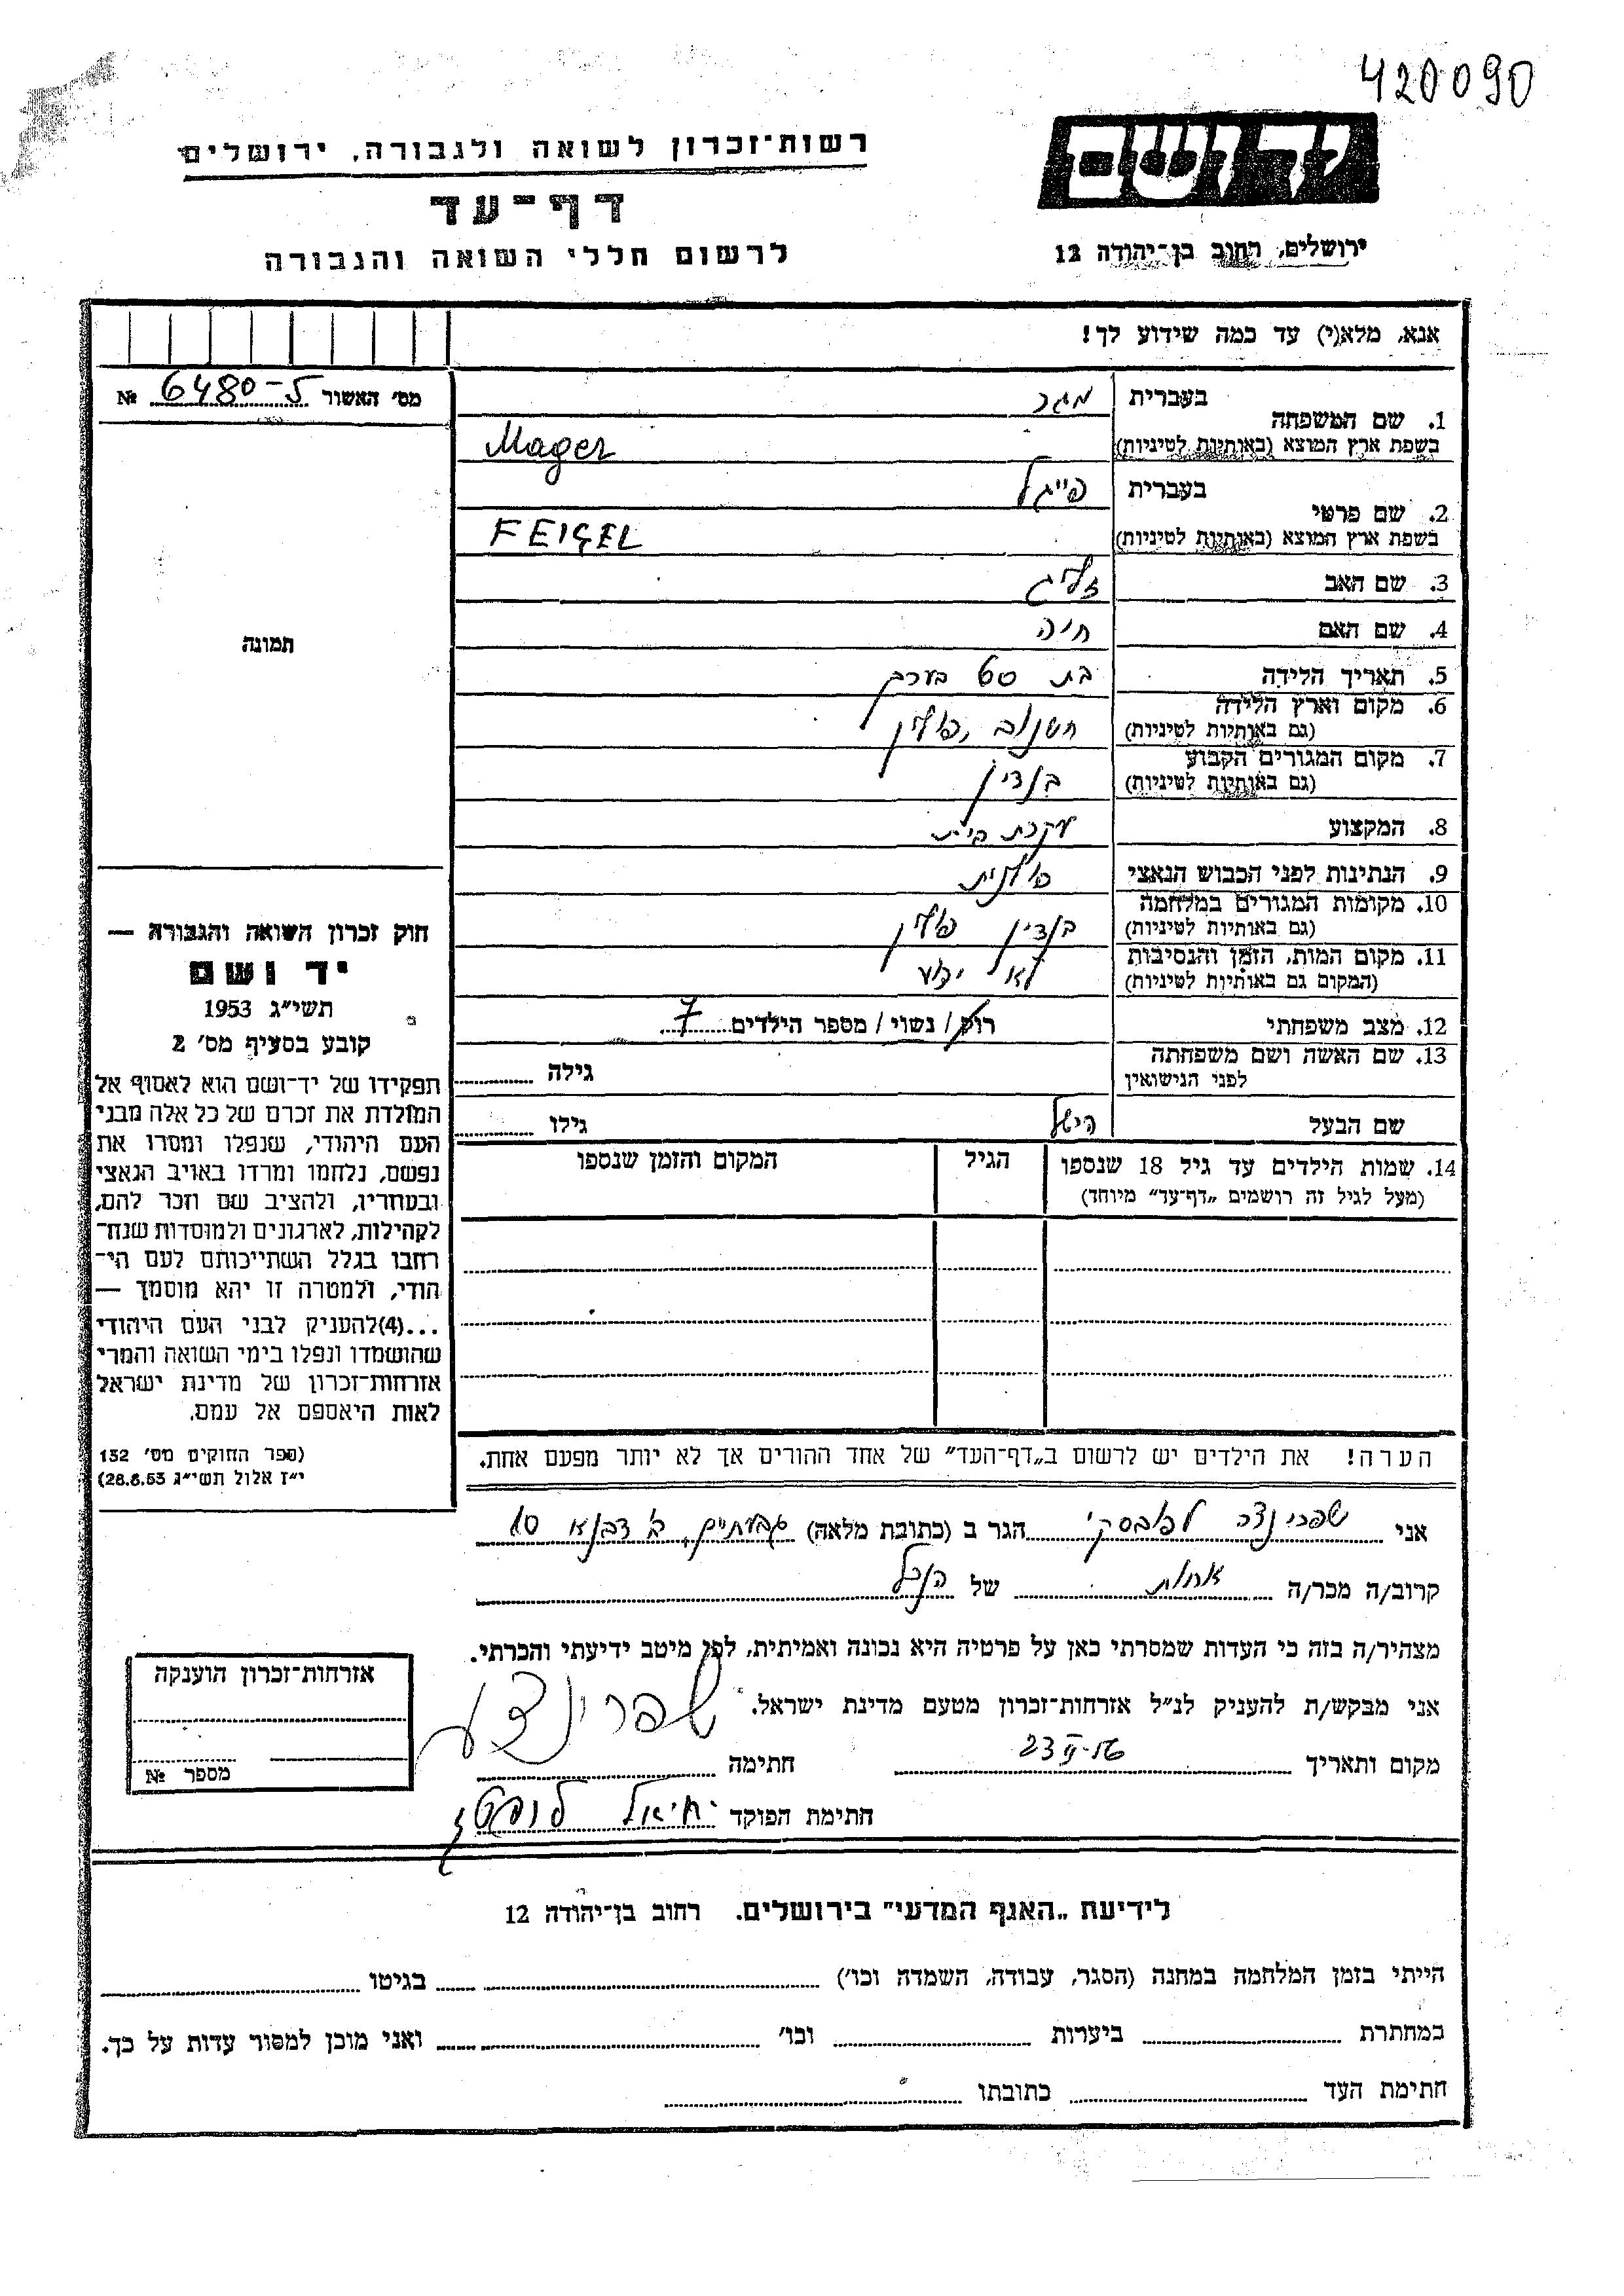 420090
יד ושם
רשות־זכרון לשואה ולגבורה, ירושלים
דף־עד
ירושלים, רחוב בן־יהודה 12
לרשום חללי השואה והגבורה
אנא, מלא(י) עד כמה שידוע לך!
מס' האשור 6480-5 №
1. שם המשפחה
בעברית מגר
בשפת ארץ המוצא (באותיות לטיניות) Mager
2. שם פרטי
בעברית פייגל
בשפת ארץ המוצא (באותיות לטיניות) FEIGEL
3. שם האב זליג
4. שם האם חיה
5. תאריך הלידה בת 60 בערך
6. מקום וארץ הלידה
(גם באותיות לטיניות) חשנוב, פולין
7. מקום המגורים הקבוע
(גם באותיות לטיניות) בנדין
8. המקצוע עקרת בית
9. הנתינות לפני הכבוש הנאצי פולנית
10. מקומות המגורים במלחמה
(גם באותיות לטיניות) בנדין פולין
11. מקום המות, הזמן והנסיבות
(המקום גם באותיות לטיניות) לא ידוע
12. מצב משפחתי רווק / נשוי / מספר הילדים 7
13. שם האשה ושם משפחתה
לפני הנישואין גילה
שם הבעל גילו
14. שמות הילדים עד גיל 18 שנספו הגיל המקום והזמן שנספו
(מעל לגיל זה רושמים „דף־עד” מיוחד)
תמונה
חוק זכרון השואה והגבורה —
יד ושם
תשי״ג 1953
קובע בסעיף מס' 2
תפקידו של יד־ושם הוא לאסוף אל
המולדת את זכרם של כל אלה מבני
העם היהודי, שנפלו ומסרו את
נפשם, נלחמו ומרדו באויב הנאצי
ובעוזריו, ולהציב שם וזכר להם,
לקהילות, לארגונים ולמוסדות שנח־
רחבו בגלל השתייכותם לעם הי־
הודי, ולמטרה זו יהא מוסמך —
...(4)להעניק לבני העם היהודי
שהושמדו ונפלו בימי השואה והמרי
אזרחות־זכרון של מדינת ישראל
לאות היאספם אל עמם.
(ספר החוקים מס' 132
י״ז אלול תשי״ג 28.8.53)
הערה! את הילדים יש לרשום ב„דף־העד” של אחד ההורים אך לא יותר מפעם אחת.
אני שפרינצה הגר ב (כתובת מלאה) גבעתיים, 10
קרוב/ה מכר/ה אחות של הנ״ל
מצהיר/ה בזה כי העדות שמסרתי כאן על פרטיה היא נכונה ואמיתית, לפי מיטב ידיעתי והכרתי.
אני מבקש/ת להעניק לנ״ל אזרחות־זכרון מטעם מדינת ישראל.
מקום ותאריך 23 חתימה שפרינצע
חתימת הפוקד יחיאל
אזרחות־זכרון הוענקה
מספר №
לידיעת „האגף המדעי” בירושלים, רחוב בן־יהודה 12
הייתי בזמן המלחמה במחנה (הסגר, עבודה, השמדה וכו') בגיטו
במחתרת ביערות וכו' ואני מוכן למסור עדות על כך.
חתימת העד כתובתו